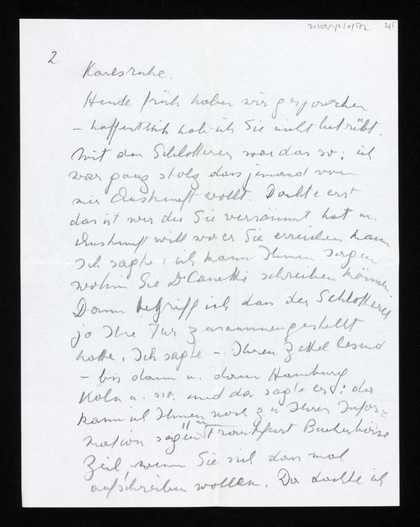 2
Karlsruhe.
Heute früh haben wir gesprochen
– hoffentlich hab ich Sie nicht betrübt.
Mit dem Schlotterer war das so: ich
war ganz stolz dass jemand von
mir Auskunft wollt. Dachte erst
das ist wer die Sie versäumt hat u.
Auskunft will wo er Sie erreichen kann
Ich sagte, ich kann Ihnen sagen
wohin Sie Dr Canetti schreiben können
Dann begriff ich dass der Schlotterer
ja Ihre Tur zusammengestellt
hatte. Ich sagte – Ihren Zettel lesend
– bis dann u. dann Hamburg
Köln u. so. und da sagte er: da
kann ich Ihnen noch zu Ihrer Infor-
mation sagen Frankfurt Buchbörse
Zeil, wenn Sie sich das mal
aufschreiben wollen. Da dachte ich